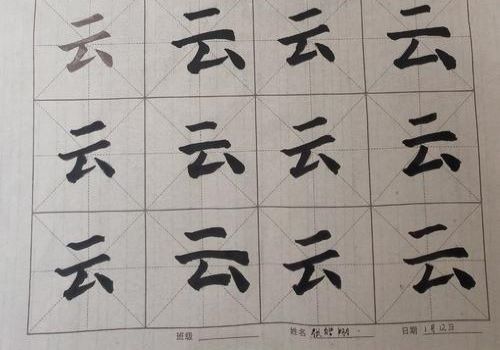 云 云 云 云
云 云 云 云
云 云 云 云
班级 姓名 日期 1月12日